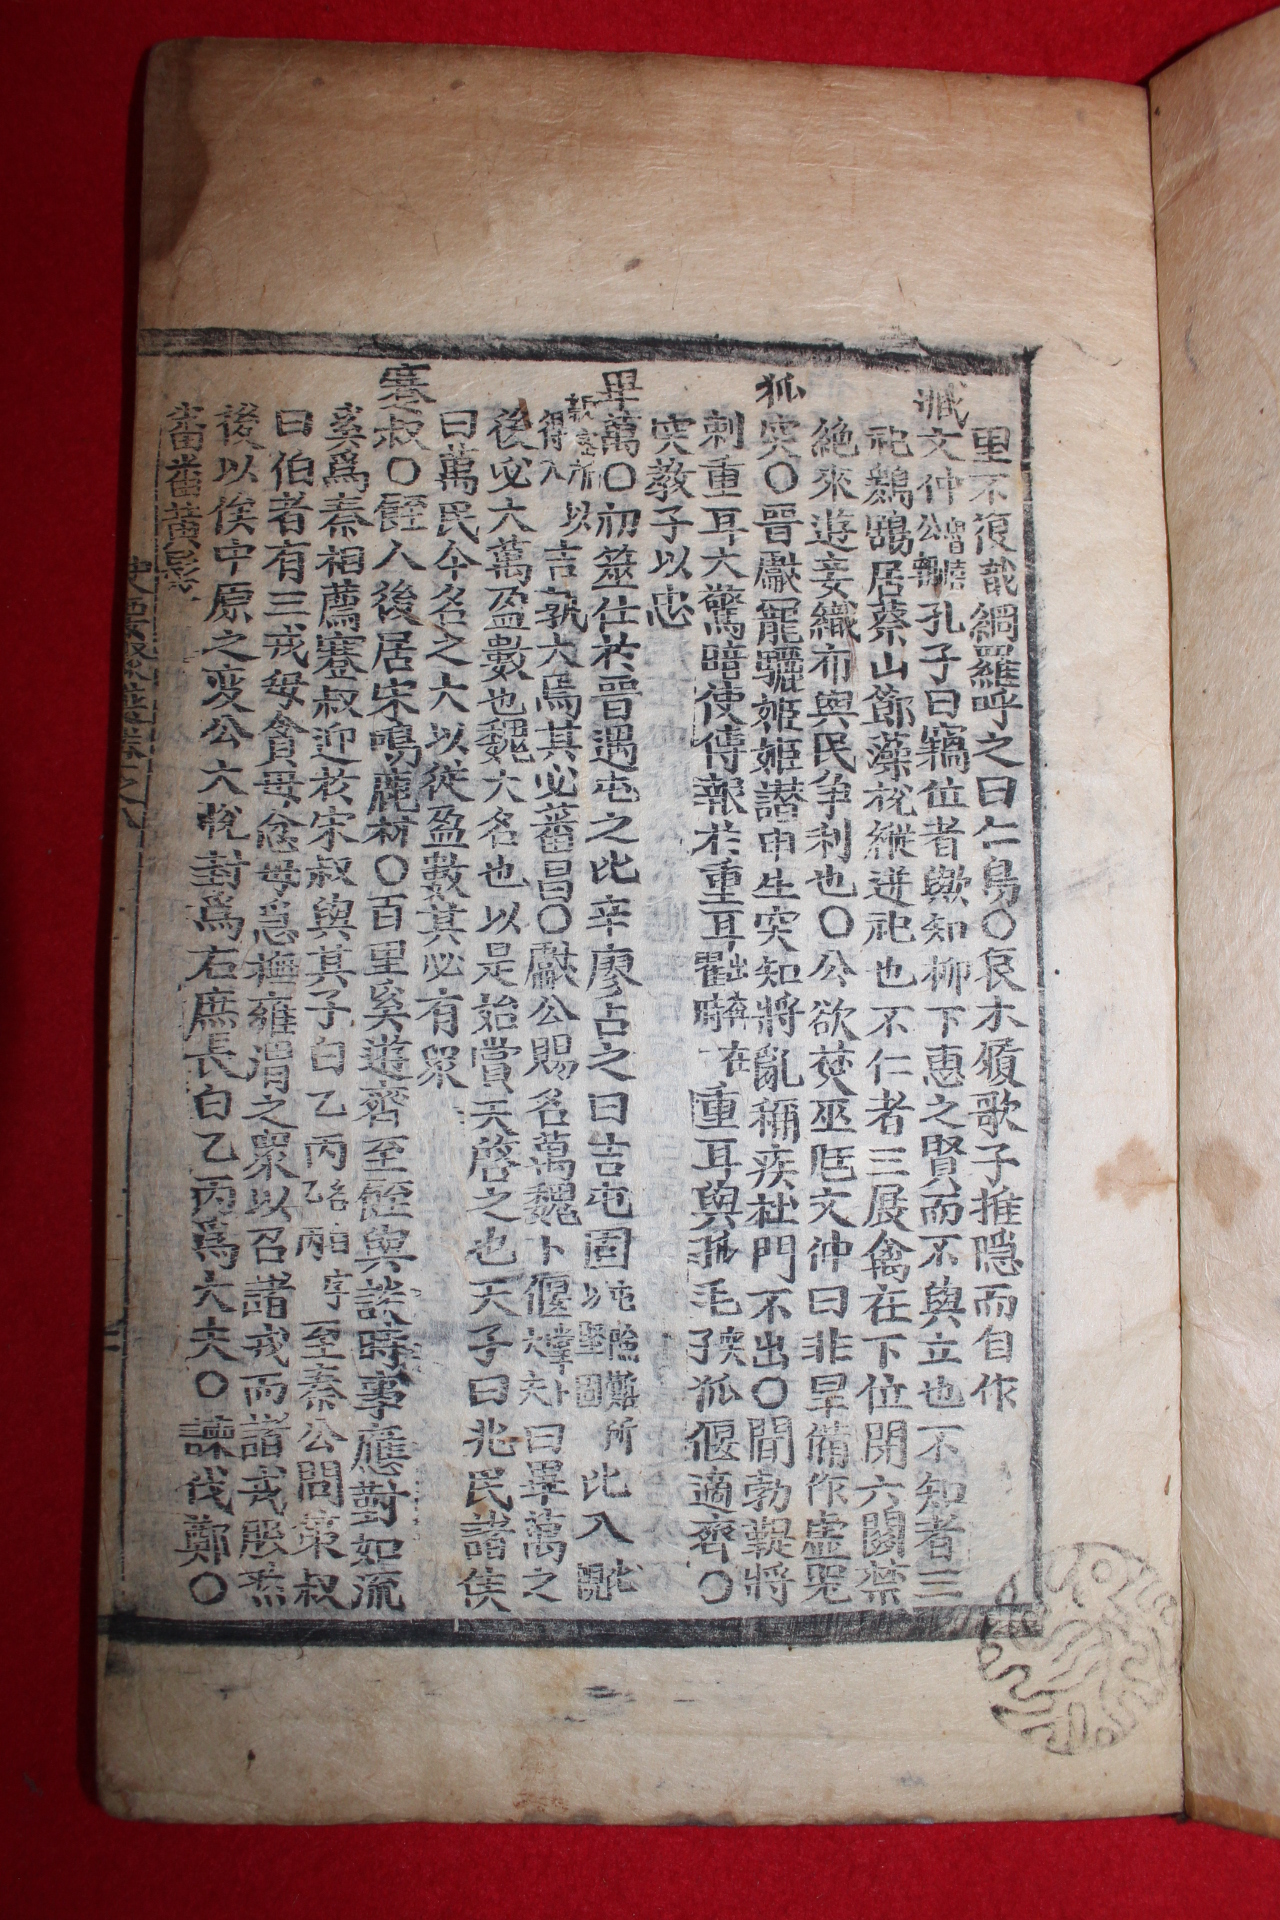 里不復哉綱羅呼之曰仁鳥〇哀木履歌子推隱而自作
臧文仲 孔子曰竊位者歟知柳下惠之賢而不與立也不知者三
祀鶢鶋居蔡山節藻梲縱逆祀也不仁者三展禽在下位開六關禁
絶來遊妾織布與民爭利也〇公欲焚巫尫文仲曰非旱備作虛器
狐突〇晉獻寵驪姬姬譖申生突知將亂稱疾杜門不出〇閽勃鞮將
刺重耳大驚暗使傳報於重耳 在重耳與狐毛子突狐偃適齊〇
突教子以忠
畢萬〇初筮仕於晉遇屯之比辛廖占之曰吉屯固 屯險難所以堅固 比入
得入 所以 吉孰大焉其必蕃昌〇獻公賜名萬魏卜偃 曰畢萬之
後必大萬盈數也魏大名也以是始賞天啓之也天子曰兆民諸侯
曰萬民今名之大以從盈數其必有衆
蹇叔〇銍人後居宋鳴鹿村〇百里奚遊齊至銍與談時事應對如流
奚爲秦相薦蹇叔迎於宋叔與其子白乙丙 至秦公問策叔
曰伯者有三戒毋貪毋忿毋急撫雍渭之衆以召諸戎而諸戎服然
後以俟中原之変公大悅封爲右庶長白乙丙爲大夫〇諫伐鄭〇
番番黃髮